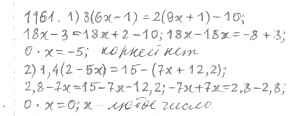 1161. 1) 3(6x-1) = 2(9x+1)-10;
18x-3=18x+2-10; 18x-18x=-8+3;
0·x=-5; корней нет
2) 1,4(2-5x)=15-(7x+12,2);
2,8-7x=15-7x-12,2; -7x+7x=2,8-2,8;
0·x=0; x-любое число